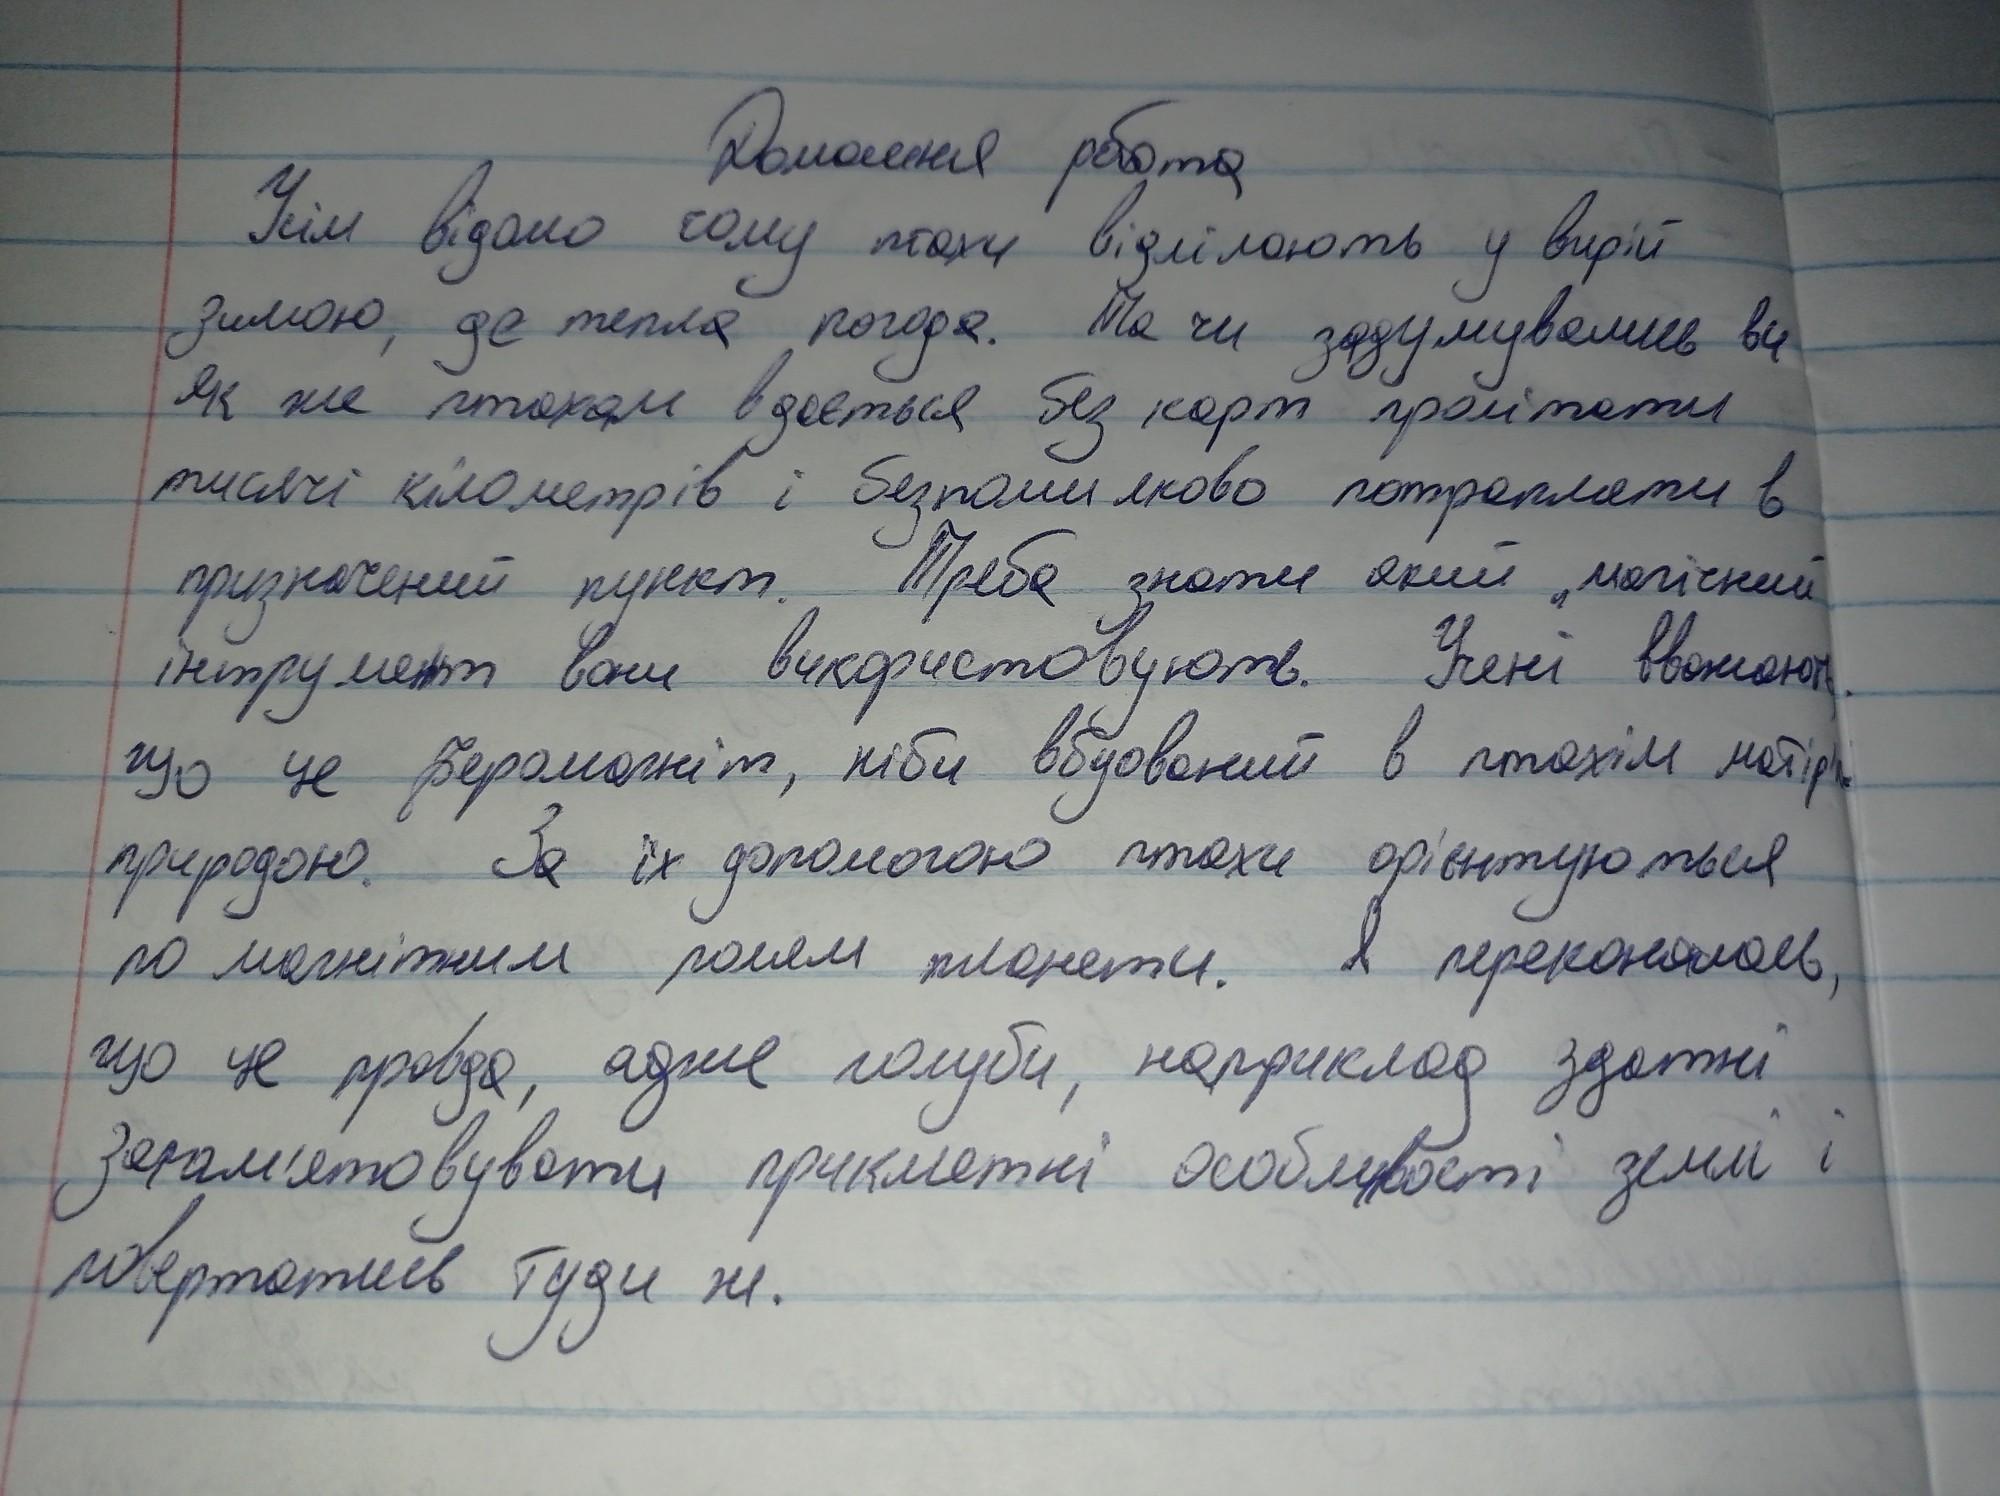 Домашня робота
Усім відомо чому птахи відлітають у вирій
зимою, де тепла погода. Та чи задумувались ви
як же птахам вдається без карт пролітати
тисячі кілометрів і безпомилково потрапляти в
призначений пункт. Треба знати який „магічний
інтрумент вони використовують. Учені вважають,
що це феромагніт, ніби вбудований в птахім матір'ю
природою. За їх допомогою птахи орієнтуються
по магнітним полям планети. Я переконалась,
що це правда, адже голуби, наприклад здатні
запам'ятовувати прикметні особливості землі і
повертатись туди ж.